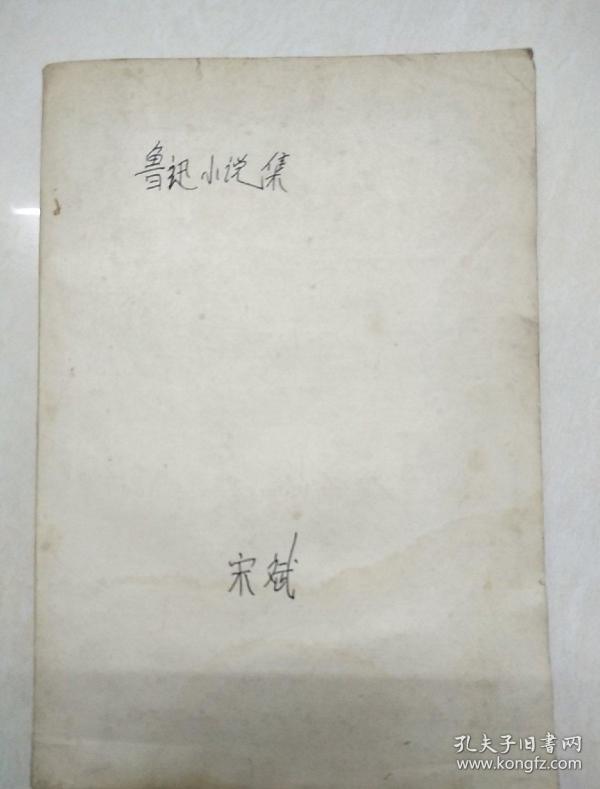 鲁迅小说集
宋斌
孔夫子旧書网
www.kongfz.com